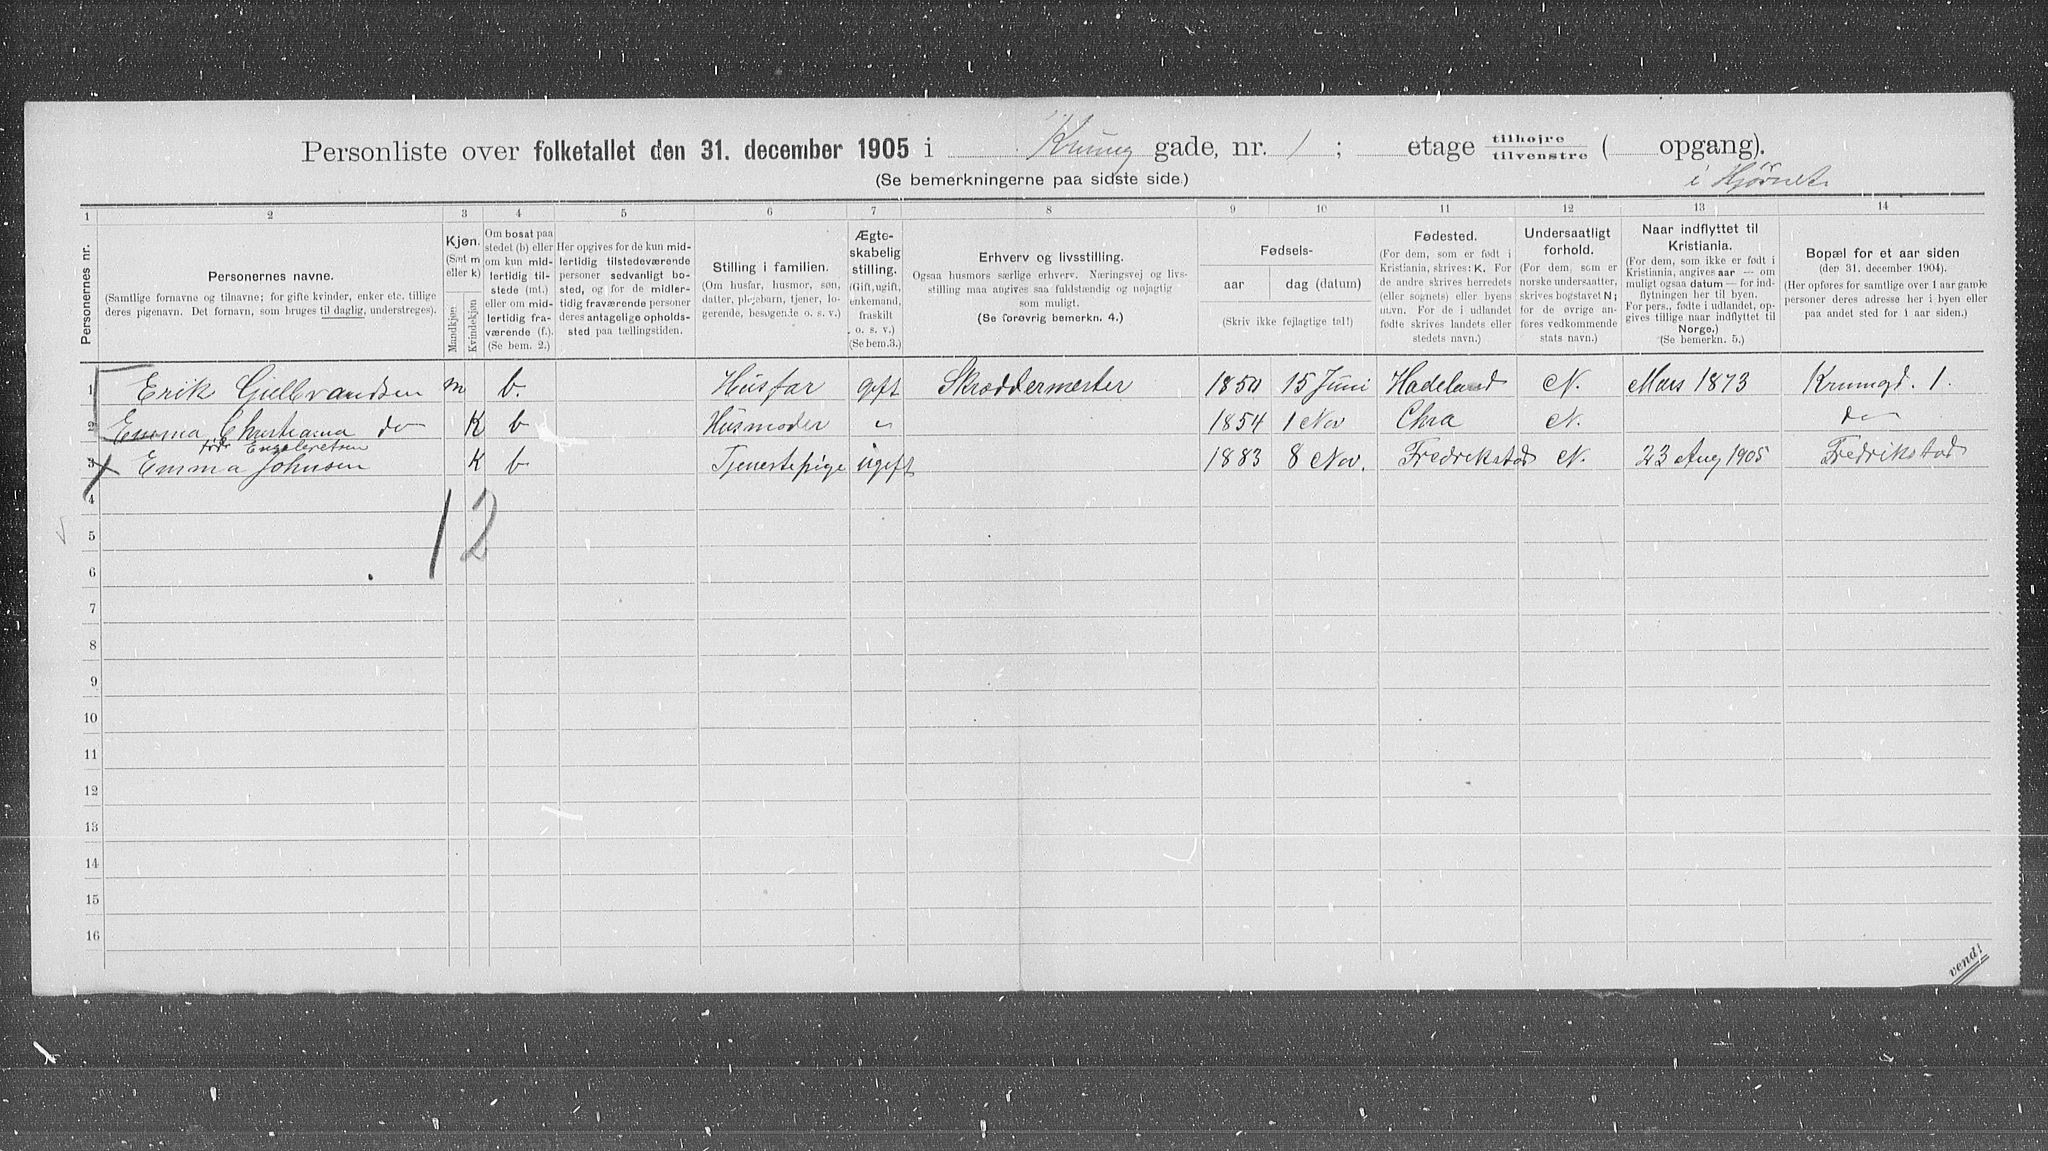 Personliste over folketallet den 31. december 1905 i Krumg gade, nr. 1; etage tilhøjre tilvenstre ( opgang).
(Se bemerkningerne paa sidste side.) i Hjørnet.
1 2 3 4 5 6 7 8 9 10 11 12 13 14
Personernes nr.
Personernes navne.
(Samtlige fornavne og tilnavne; for gifte kvinder, enker etc. tillige deres pigenavn. Det fornavn, som bruges til daglig, understreges).
Kjøn.
(Sæt m eller k)
Mandkjøn
Kvindekjøn
Om bosat paa stedet (b) eller om kun midlertidig tilstede (mt.) eller om midlertidig fraværende (f.).
(Se bem. 2.)
Her opgives for de kun midlertidig tilstedeværende personer sedvanligt bosted, og for de midlertidig fraværende personer deres antagelige opholdssted paa tællingstiden.
Stilling i familien.
(Om husfar, husmor, søn, datter, plejebarn, tjener, logerende, besøgende o. s. v.)
Ægteskabelig stilling.
(Gift, ugift, enkemand, fraskilt o. s. v.)
(Se bem. 3.)
Erhverv og livsstilling.
Ogsaa husmors særlige erhverv. Næringsvej og livsstilling maa angives saa fuldstændig og nøjagtig som muligt.
(Se forøvrig bemerkn. 4.)
Fødsels-
aar dag (datum)
(Skriv ikke fejlagtige tal!)
Fødested.
(For dem, som er født i Kristiania, skrives: K. For de andre skrives herredets (eller sognets) eller byens navn. For de i udlandet fødte skrives landets eller stedets navn.)
Undersaatligt forhold.
(For dem, som er norske undersaatter, skrives bogstavet N; for de øvrige anføres vedkommende stats navn.)
Naar indflyttet til Kristiania.
(For dem, som ikke er født i Kristiania, angives aar — om muligt ogsaa datum — for indflytningen her til byen. For pers., fødte i udlandet, opgives tillige naar indflyttet til Norge.)
(Se bemerkn. 5.)
Bopæl for et aar siden
(den 31. december 1904).
(Her opføres for samtlige over 1 aar gamle personer deres adresse her i byen eller paa andet sted for 1 aar siden.)
1 Erik Gulbrandsen m b. Husfar gift Skræddermester 1850 15 Juni Hadeland N. Mars 1873 Krumgd. 1.
2 Emma Christiana do K b Husmoder " 1854 1 Nov Chra N. do
født Engebretsen
3 Emma Johnsen K b Tjenestepige ugift 1883 8 Nov. Fredrikstad N. 23 Aug 1905 Fredrikstad
4
1 2
5
6
7
8
9
10
11
12
13
14
15
16
vend!